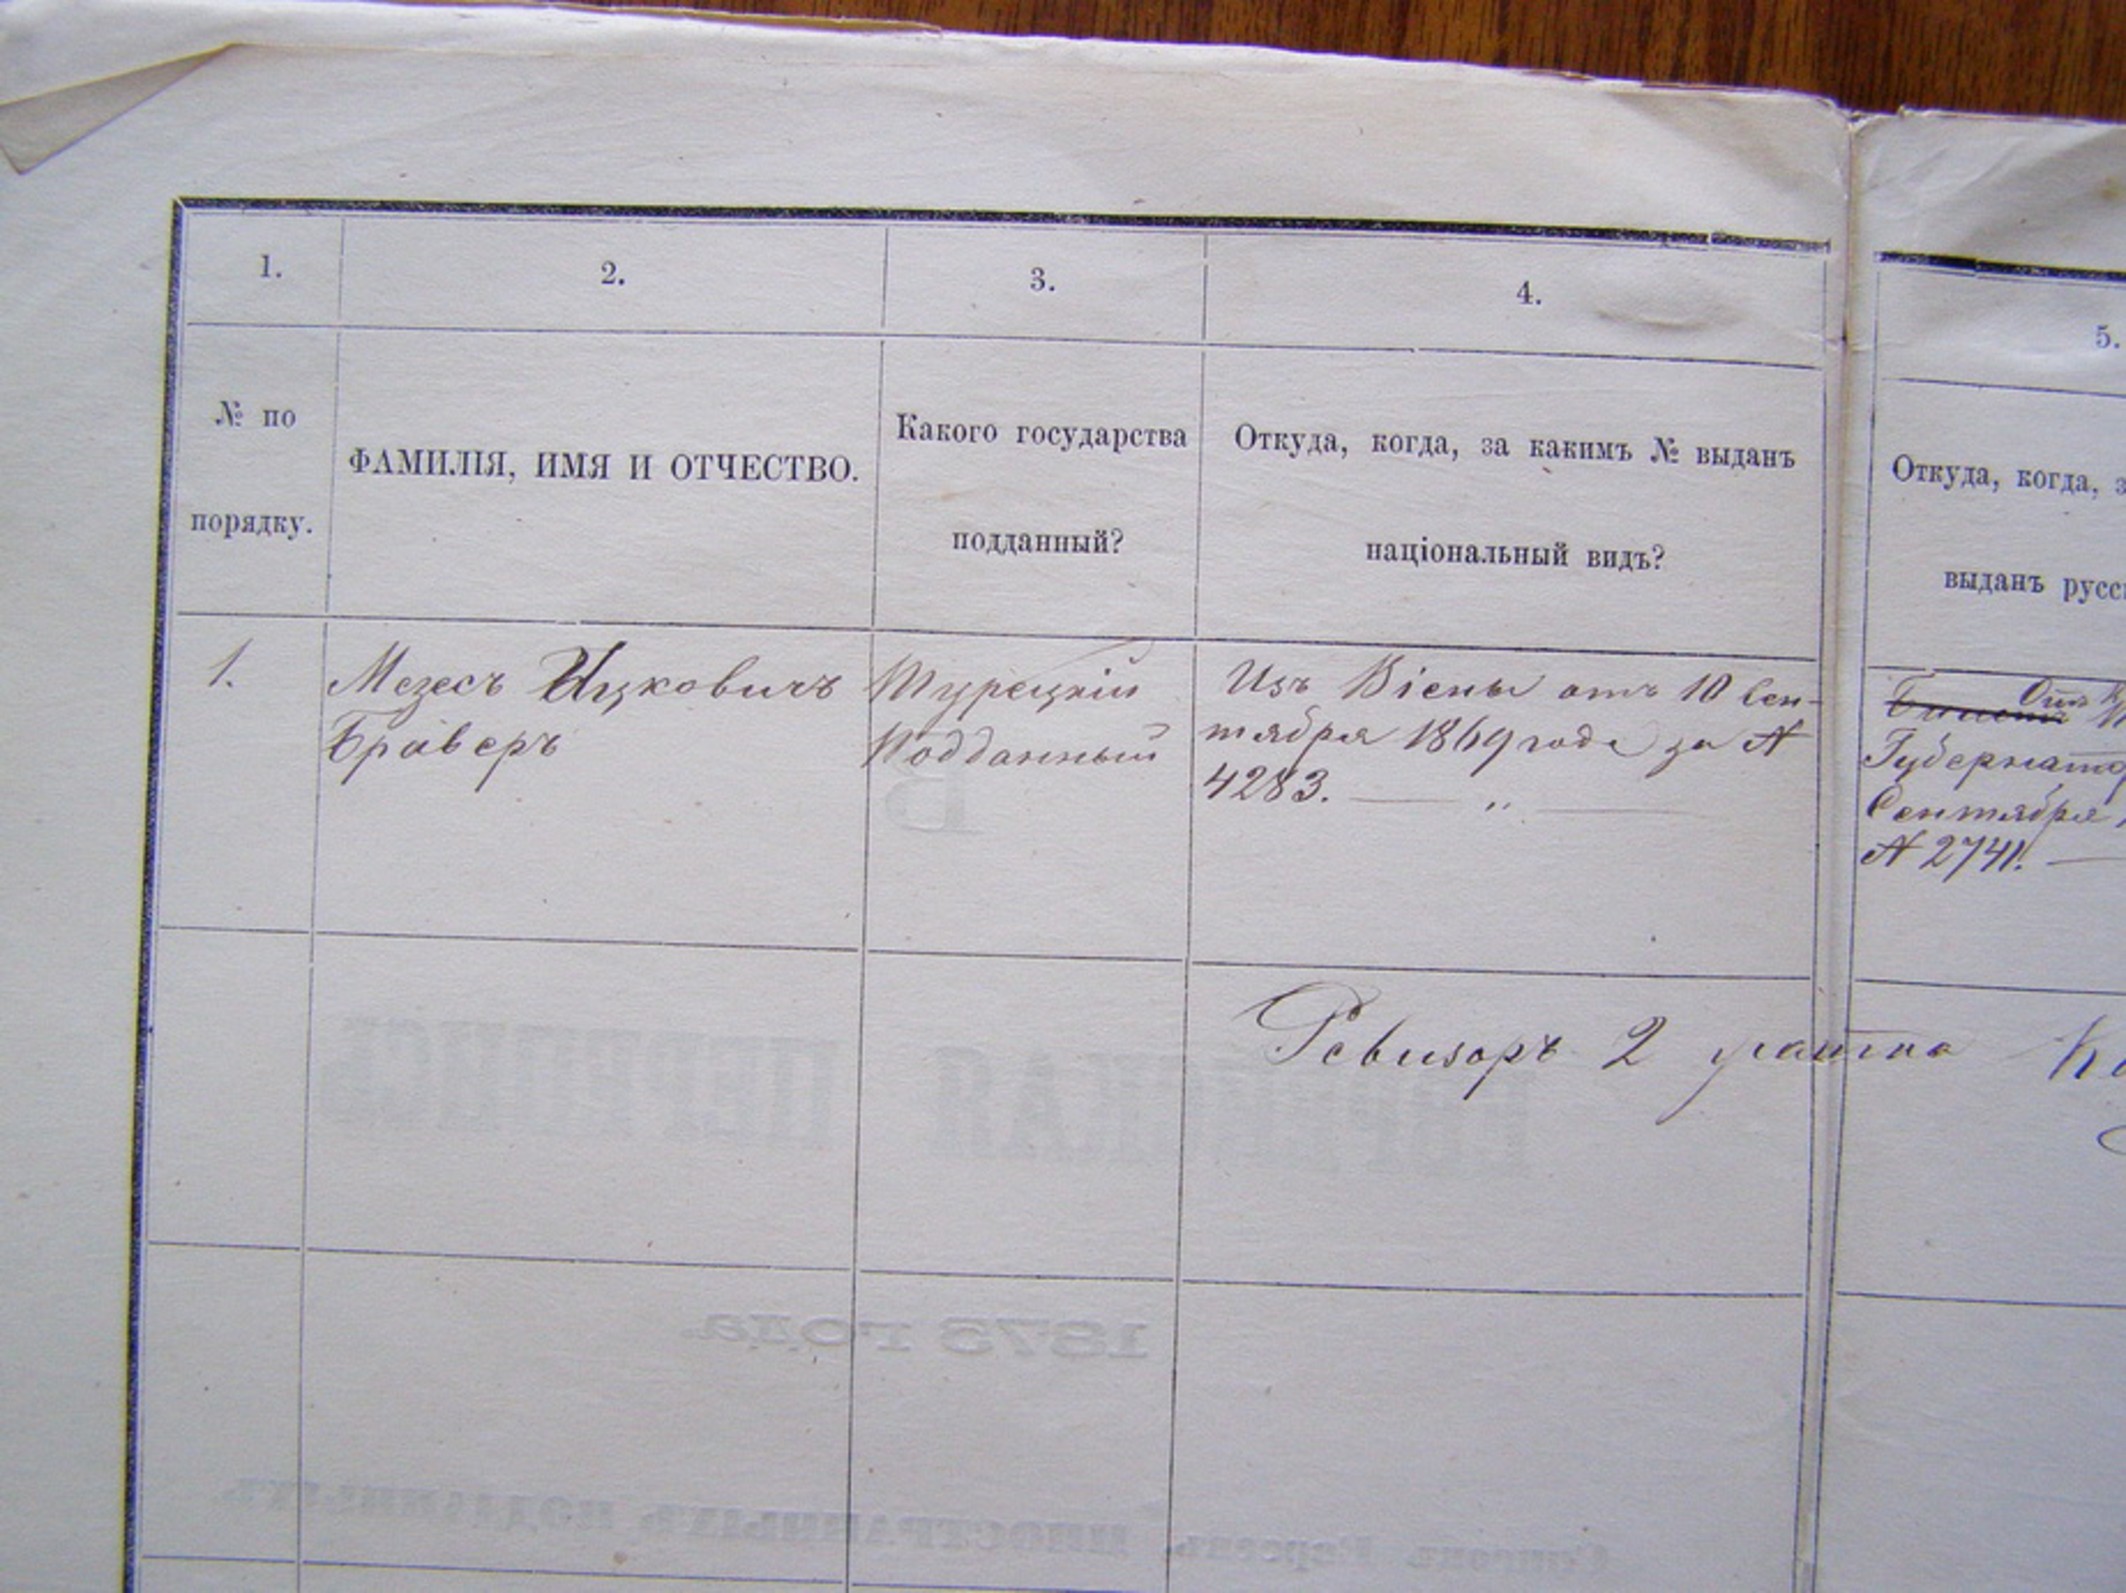 1.
2.
3.
4.
5.
№ по
порядку.
ФАМИЛІЯ, ИМЯ И ОТЧЕСТВО.
Какого государства
подданный?
Откуда, когда, за какимъ № выданъ
національный видъ?
Откуда, когда, з
выданъ русс
1.
Мезесъ Ицковичъ
Браверъ
Турецкій
Подданный
Изъ Віены отъ 10 Сен-
тября 1869 года за №
4283. — „ —
Отъ
Губернатор
Сентября
№ 2741. —
Ревизоръ 2 участка
В
ЕВРЕЙСКАЯ ПЕРЕПИСЬ
1875 года.
Списокъ Евреевъ, ИНОСТРАННЫХЪ ПОДДАННЫХЪ.